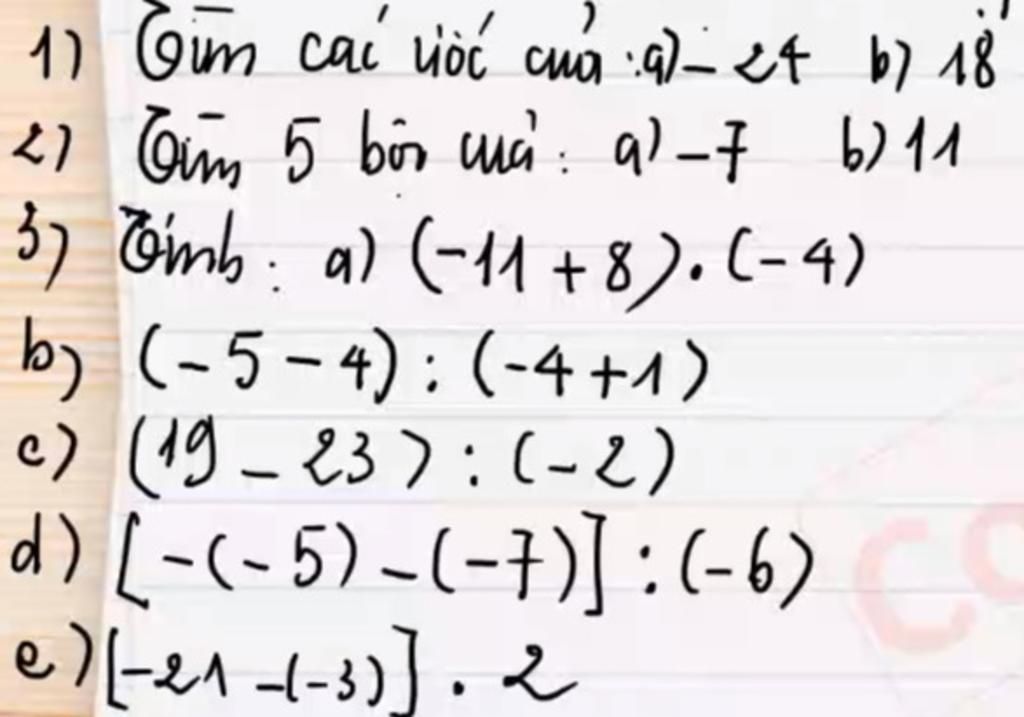 1) Tìm các ước của : a) - 24 b) 18
2) Tìm 5 bội của : a) - 7 b) 11
3) Tính : a) (-11 + 8) . (-4)
b) (-5 - 4) : (-4 + 1)
c) (19 - 23) : (-2)
d) [-(-5) - (-7)] : (-6)
e) [-21 - (-3)] . 2